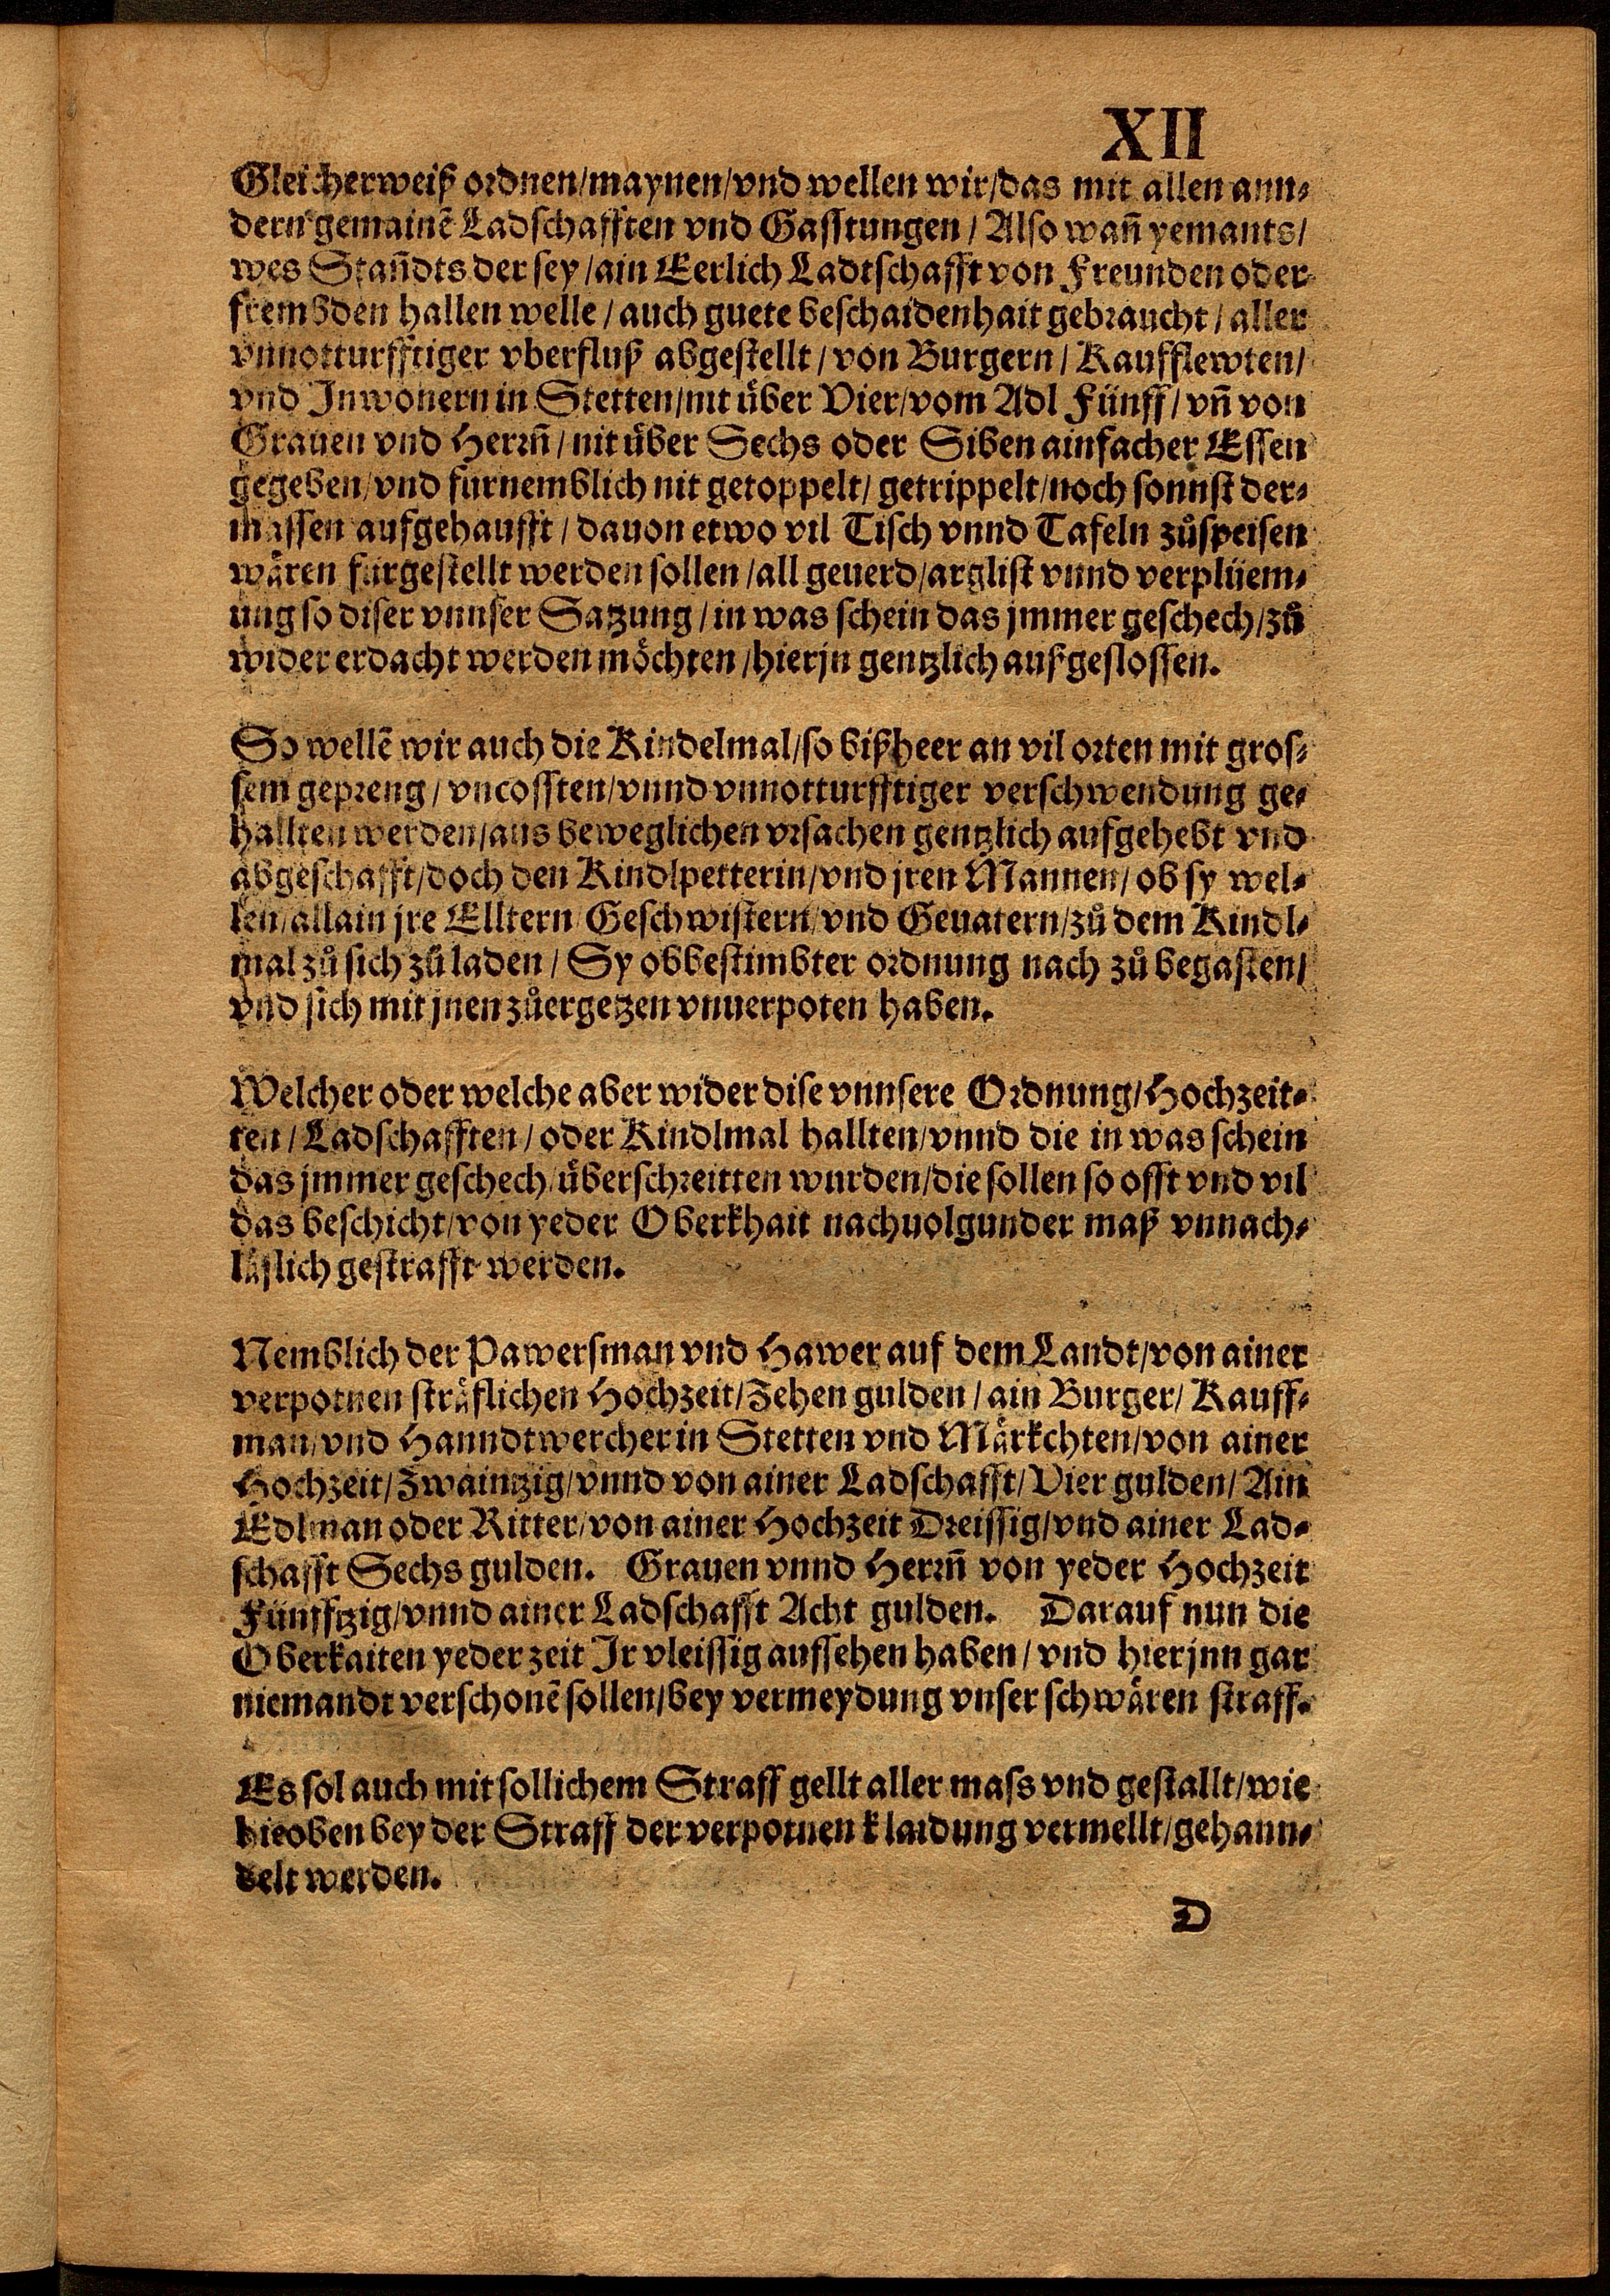 XII
Gleicherweiß ordnen/maynen/vnd wellen wir/das mit allen ann⸗
dern gemainẽ Ladschafften vnd Gasstungen/ Also wañ yemants/
wes Stañdts der sey/ain Eerlich Ladtschafft von Freunden oder
frembden hallen welle/auch guete beschaidenhait gebraucht/aller
vnnotturfftiger vberfluß abgestellt/von Burgern/Kaufflewten/
vnd Inwonern in Stetten/nit über Vier/vom Adl Fünff/vñ von
Grauen vnd Herrñ/nit über Sechs oder Siben ainfacher Essen
gegeben/vnd fürnemblich nit getoppelt/getrippelt/noch sonnst der⸗
massen aufgehaufft/dauon etwo vil Tisch vnnd Tafeln zůspeisen
wären fürgestellt werden sollen/all geuerd/arglist vnnd verplüem⸗
ung so diser vnnser Satzung/in was schein das jmmer geschech/zů
wider erdacht werden möchten/hierjn gentzlich außgeslossen.
So wellẽ wir auch die Kindelmal/so bißheer an vil orten mit gros⸗
sem gepreng/vncossten/vnnd vnnotturfftiger verschwendung ge⸗
hallten werden/aus beweglichen vrsachen gentzlich aufgehebt vnd
abgeschafft/doch den Kindlpetterin/vnd jren Mannen/ob sy wel⸗
len/allain jre Elltern/Geschwistern/vnd Geuatern/zů dem Kindl⸗
mal zů sich zů laden/Sy obbestimbter ordnung nach zů begasten/
vnd sich mit jnen zůergetzen vnuerpoten haben.
Welcher oder welche aber wider dise vnnsere Ordnung/Hochzeit⸗
ten/Ladschafften/oder Kindlmal hallten/vnnd die in was schein
das jmmer geschech/überschreitten wurden/die sollen so offt vnd vil
das beschicht/von yeder Oberkhait nachuolgunder maß vnnach⸗
läslich gestrafft werden.
Nemblich der Pawersman vnd Hawer auf dem Landt/von ainer
verpotnen sträflichen Hochzeit/Zehen gulden/ain Burger/Kauff⸗
man/vnd Hanndtwercher in Stetten vnd Märkchten/von ainer
Hochzeit/Zwaintzig/vnnd von ainer Ladschafft/Vier gulden/Ain
Edlman oder Ritter/von ainer Hochzeit Dreissig/vnd ainer Lad⸗
schafft Sechs gulden. Grauen vnnd Herrñ von yeder Hochzeit
Fünfftzig/vnnd ainer Ladschafft Acht gulden. Darauf nun die
Oberkaiten yeder zeit Ir vleissig aufsehen haben/vnd hierjnn gar
niemandt verschonẽ sollen/bey vermeydung vnser schwären straff.
Es sol auch mit sollichem Straff gellt aller mass vnd gestallt/wie
hieoben bey der Straff der verpotnen klaidung vermellt/gehann⸗
delt werden.
D